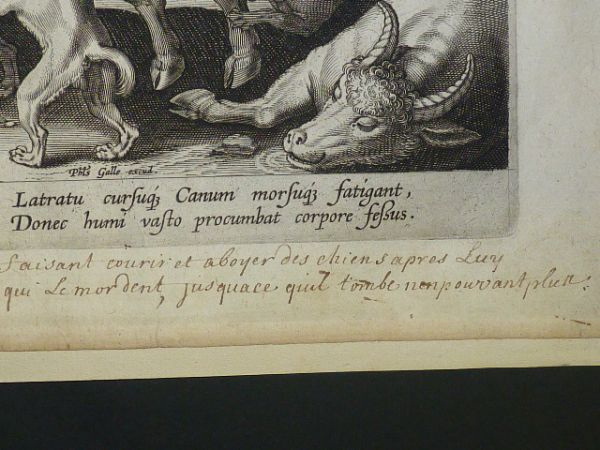 Phls Galle excud.
Latratu cursuq3 Canum morsuq3 fatigant,
Donec humi vasto procumbat corpore feſsus.
faisant courir et aboyer des chiens apres Luy
qui Le mordent, jusquace quil tombe nenpouvant plus: